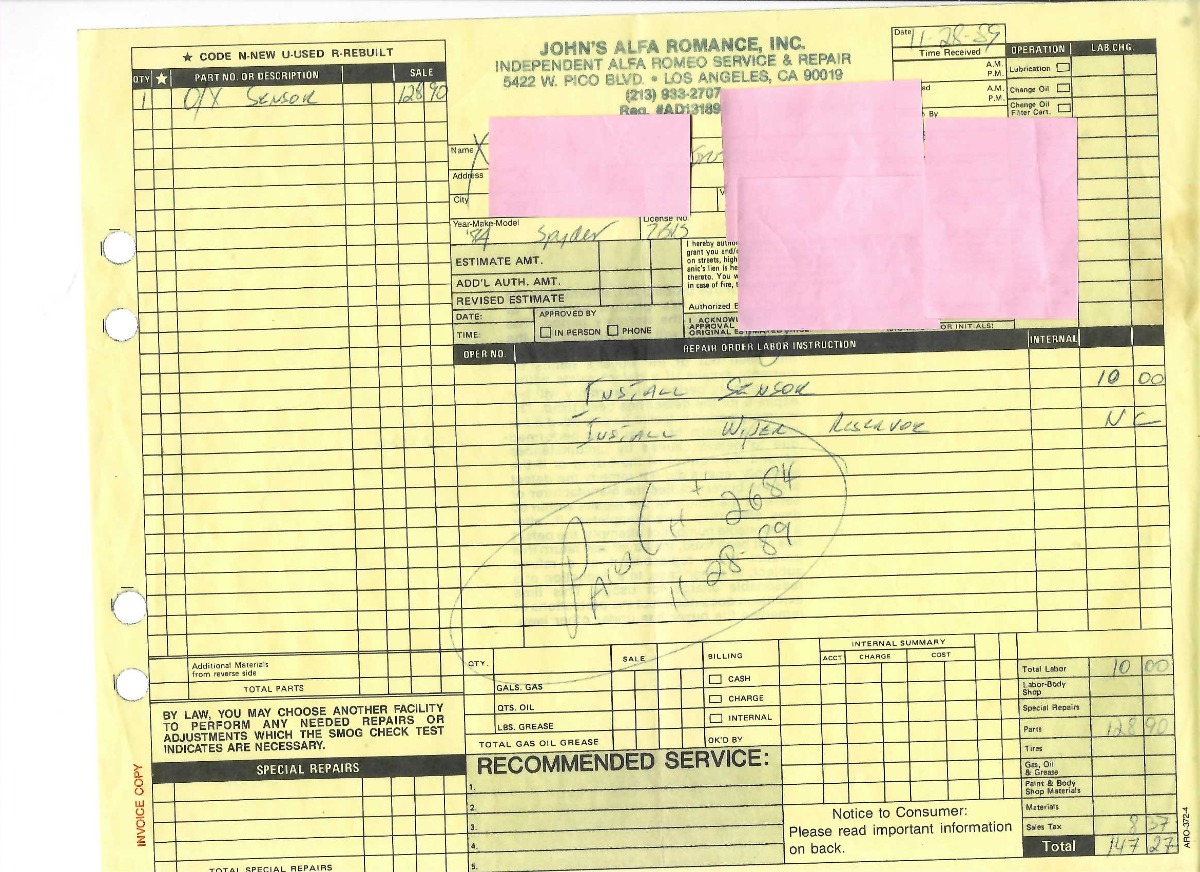 ★ CODE N-NEW U-USED R-REBUILT
QTY ★ PART NO. OR DESCRIPTION SALE
1 O/X SENSOR 128 90
JOHN'S ALFA ROMANCE, INC.
INDEPENDENT ALFA ROMEO SERVICE & REPAIR
5422 W. PICO BLVD. • LOS ANGELES, CA 90019
(213) 933-2707
Reg. #AD13189
Date 11-28-89
Time Received
A.M.
P.M.
A.M.
P.M.
By
OPERATION LAB.CHG.
Lubrication
Change Oil
Change Oil
Filter Cart.
Name X
Address
City
Year-Make-Model
License No
'84 Spyder
ESTIMATE AMT.
ADD'L AUTH. AMT.
REVISED ESTIMATE
DATE: APPROVED BY
TIME: IN PERSON PHONE
I hereby
grant you and/
on streets, high
anic's lien is he
thereto. You w
in case of fire,
Authorized
I ACKNOW
APPROVAL
ORIGINAL
OR INITIALS)
OPER NO. REPAIR ORDER LABOR INSTRUCTION INTERNAL
INSTALL SENSOR 10 00
INSTALL WIPER RESERVOR N C
PAID CH # 2684
11-28-89
Additional Materials
from reverse side
TOTAL PARTS
BY LAW, YOU MAY CHOOSE ANOTHER FACILITY
TO PERFORM ANY NEEDED REPAIRS OR
ADJUSTMENTS WHICH THE SMOG CHECK TEST
INDICATES ARE NECESSARY.
SPECIAL REPAIRS
TOTAL SPECIAL REPAIRS
INVOICE COPY
QTY. SALE
GALS. GAS
QTS. OIL
LBS. GREASE
TOTAL GAS OIL GREASE
BILLING
CASH
CHARGE
INTERNAL
OK'D BY
INTERNAL SUMMARY
ACCT CHARGE COST
RECOMMENDED SERVICE:
1.
2.
3.
4.
5.
Notice to Consumer:
Please read important information
on back.
Total Labor 10 00
Labor-Body
Shop
Special Repairs
Parts 128 90
Tires
Gas, Oil
& Grease
Paint & Body
Shop Materials
Materials
Sales Tax 8 37
Total 147 27
ARO-372-4